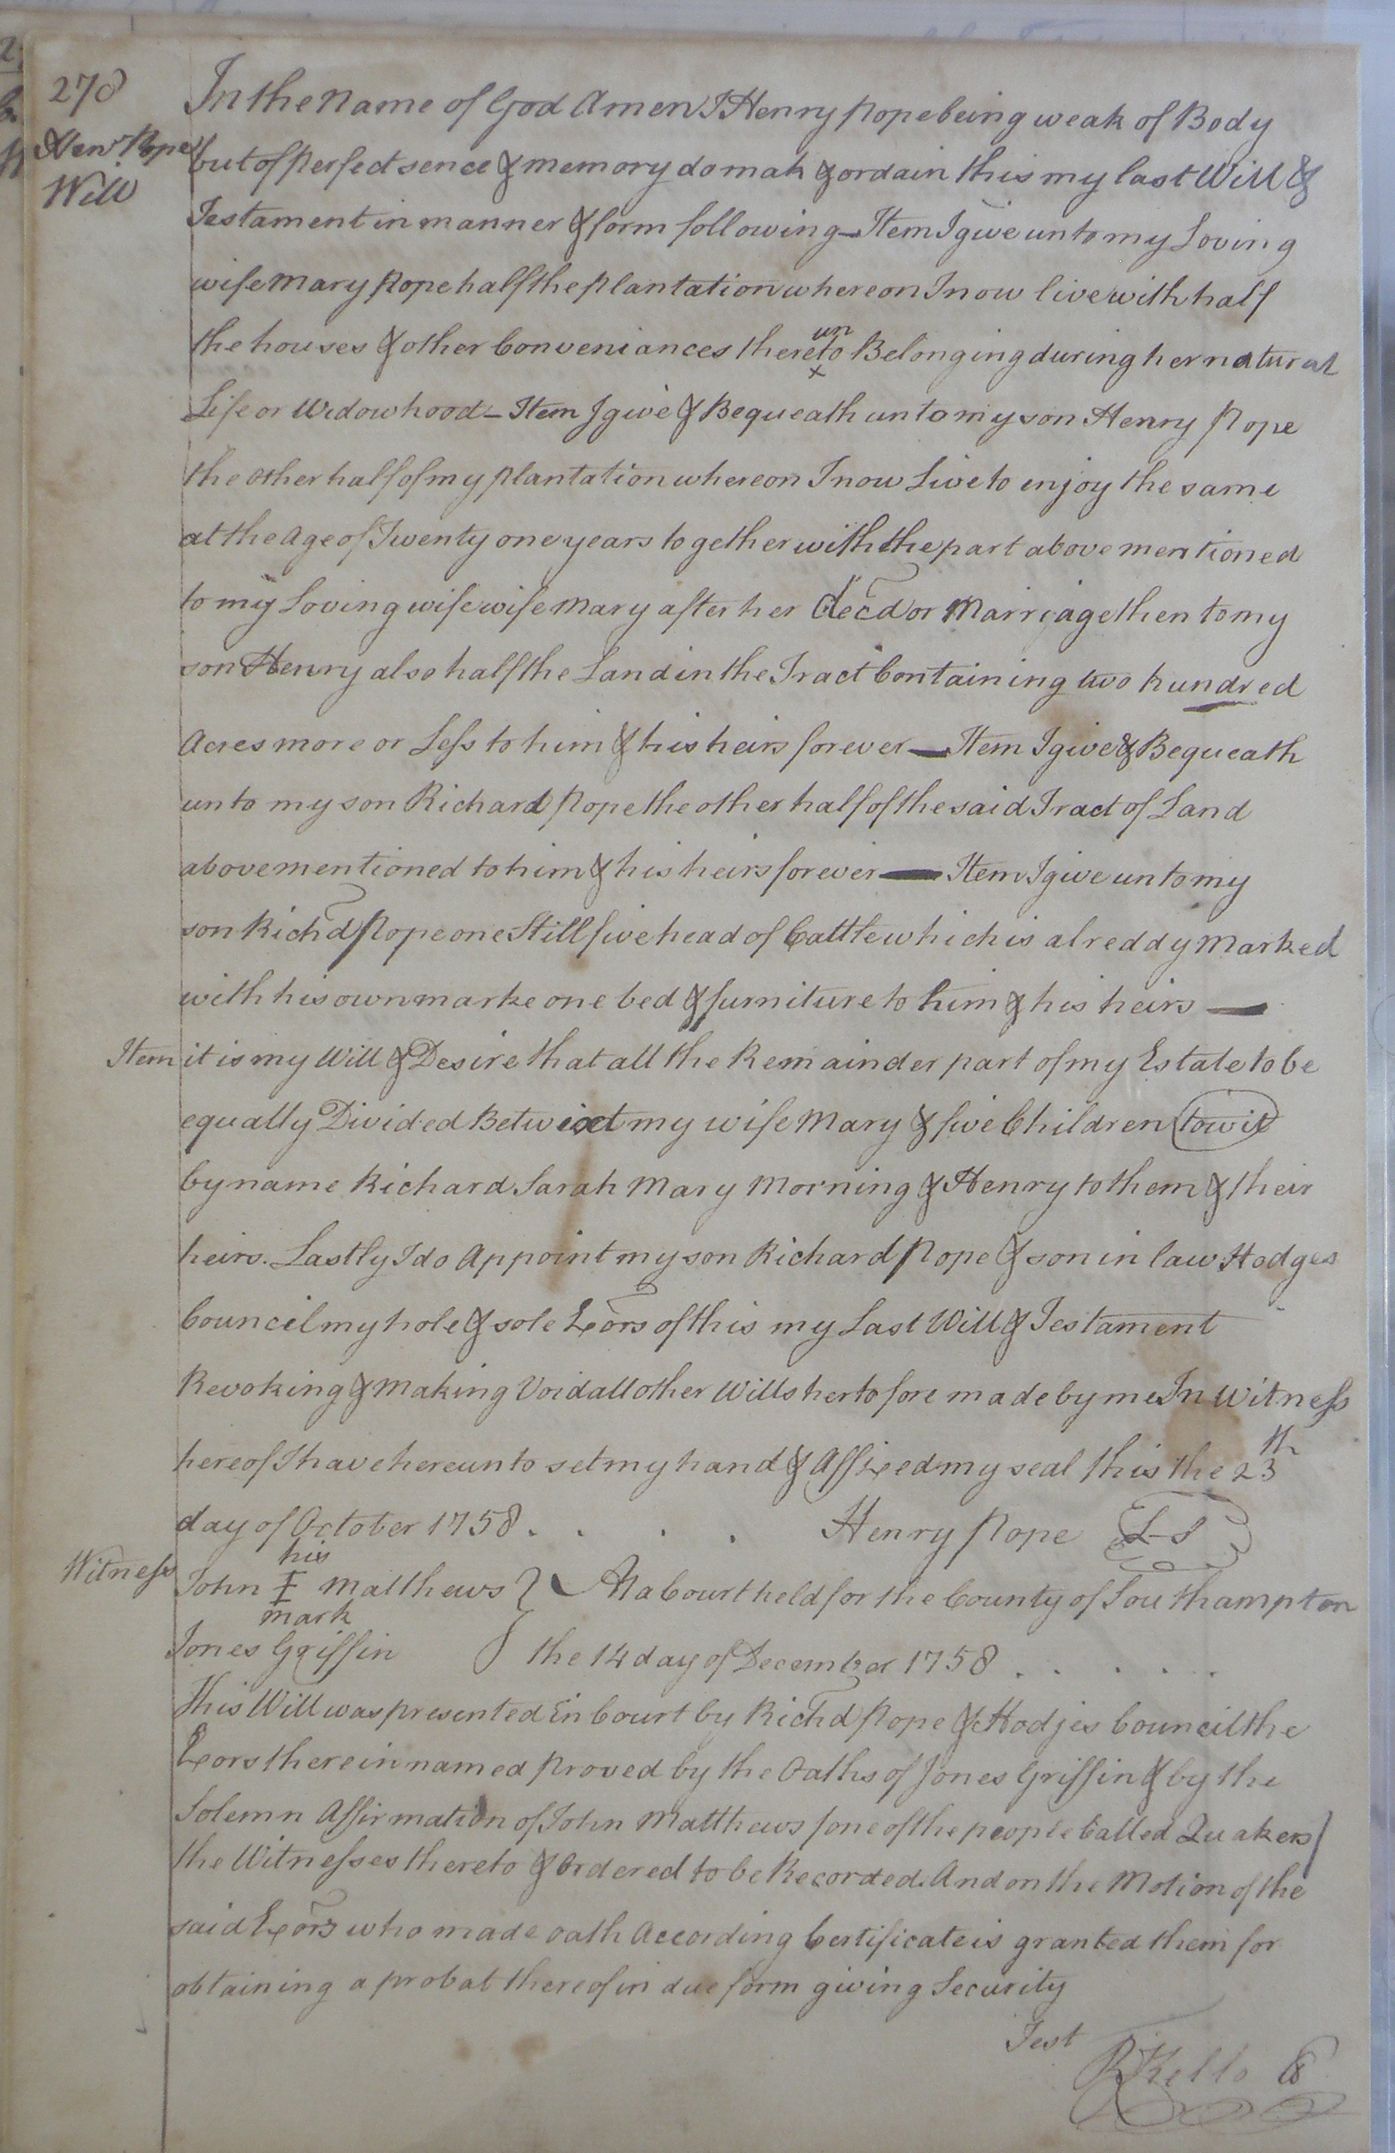 278
Henr Pope
Will
In the Name of God Amen I Henry Pope being weak of Body
but of Perfect sence & memory do mak & ordain this my last Will &
Testament in manner & form following — Item I give unto my Loving
wife Mary Pope half the Plantation whereon I now live with half
the houses & other Conveniances thereunto Belonging during her natural
Life or Widowhood — Item I give & Bequeath unto my son Henry Pope
the other half of my Plantation whereon I now Live to enjoy the same
at the Age of Twenty one years together with the part above mentioned
to my Loving wife wife Mary after her decd or Marriage then to my
son Henry also half the Land in the Tract Containing two hundred
Acres more or Less to him & his heirs forever — Item I give & Bequeath
unto my son Richard Pope the other half of the said Tract of Land
above mentioned to him & his heirs forever — Item I give unto my
son Richd Pope one Still five head of Cattle which is alreddy Marked
with his own marke one bed & furniture to him & his heirs —
Item it is my Will & Desire that all the Remainder part of my Estate to be
equally Divided Betwixt my wife Mary & five Children towit
by name Richard Sarah Mary Morning & Henry to them & their
heirs. Lastly I do Appoint my son Richard Pope & son in law Hodges
Council my hole & sole Exors of this my Last Will & Testament
Revoking & Making Void all other Wills hertofore made by me In Witness
hereof I have hereunto set my hand & Affixed my seal this the 23th
day of October 1758 . . . . Henry Pope L-S
Witness John his I mark Matthews } At a Court held for the County of Southampton
Jones Griffin } the 14 day of December 1758 . . . . .
This Will was presented in Court by Richd Pope & Hodjes Council the
Exors therein named Proved by the Oaths of Jones Griffin & by the
Solemn Affirmation of John Matthews / one of the people Called Quakers /
the Witnesses thereto & Ordered to be Recorded. And on the Motion of the
said Exors who made oath According Certificate is granted them for
obtaining a probat thereof in due form giving Security
Test
R Kello